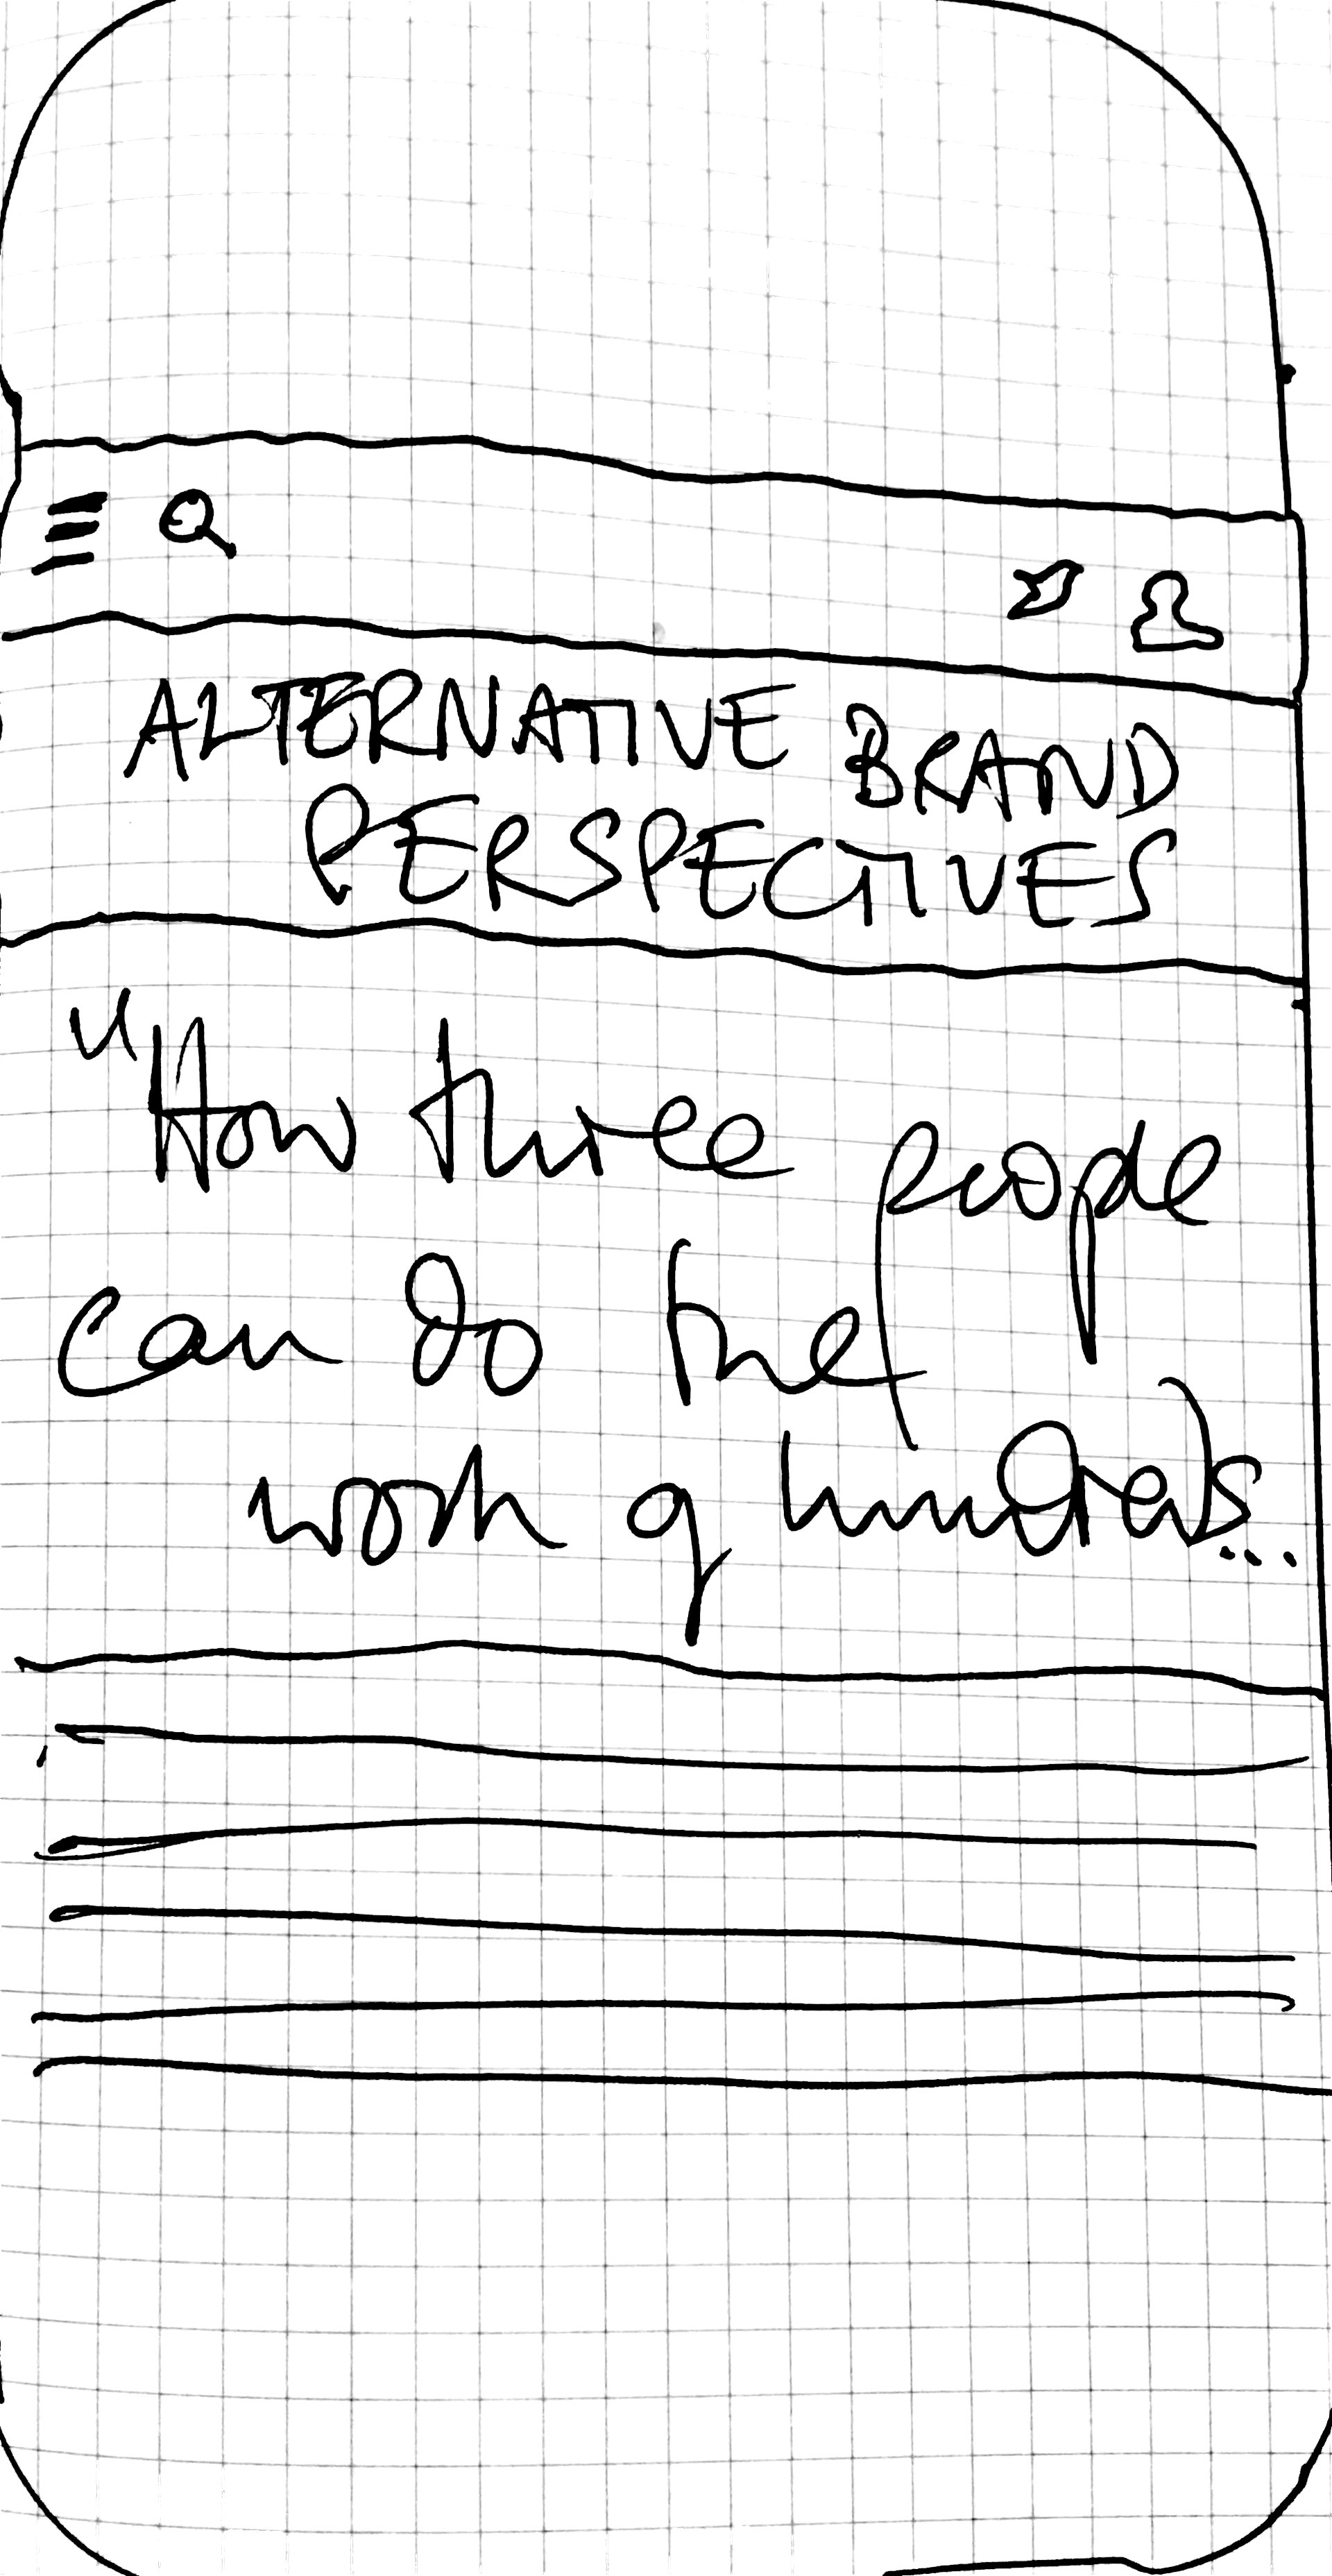 ALTERNATIVE BRAND
PERSPECTIVES
"How three people
can do the
work of hundreds...